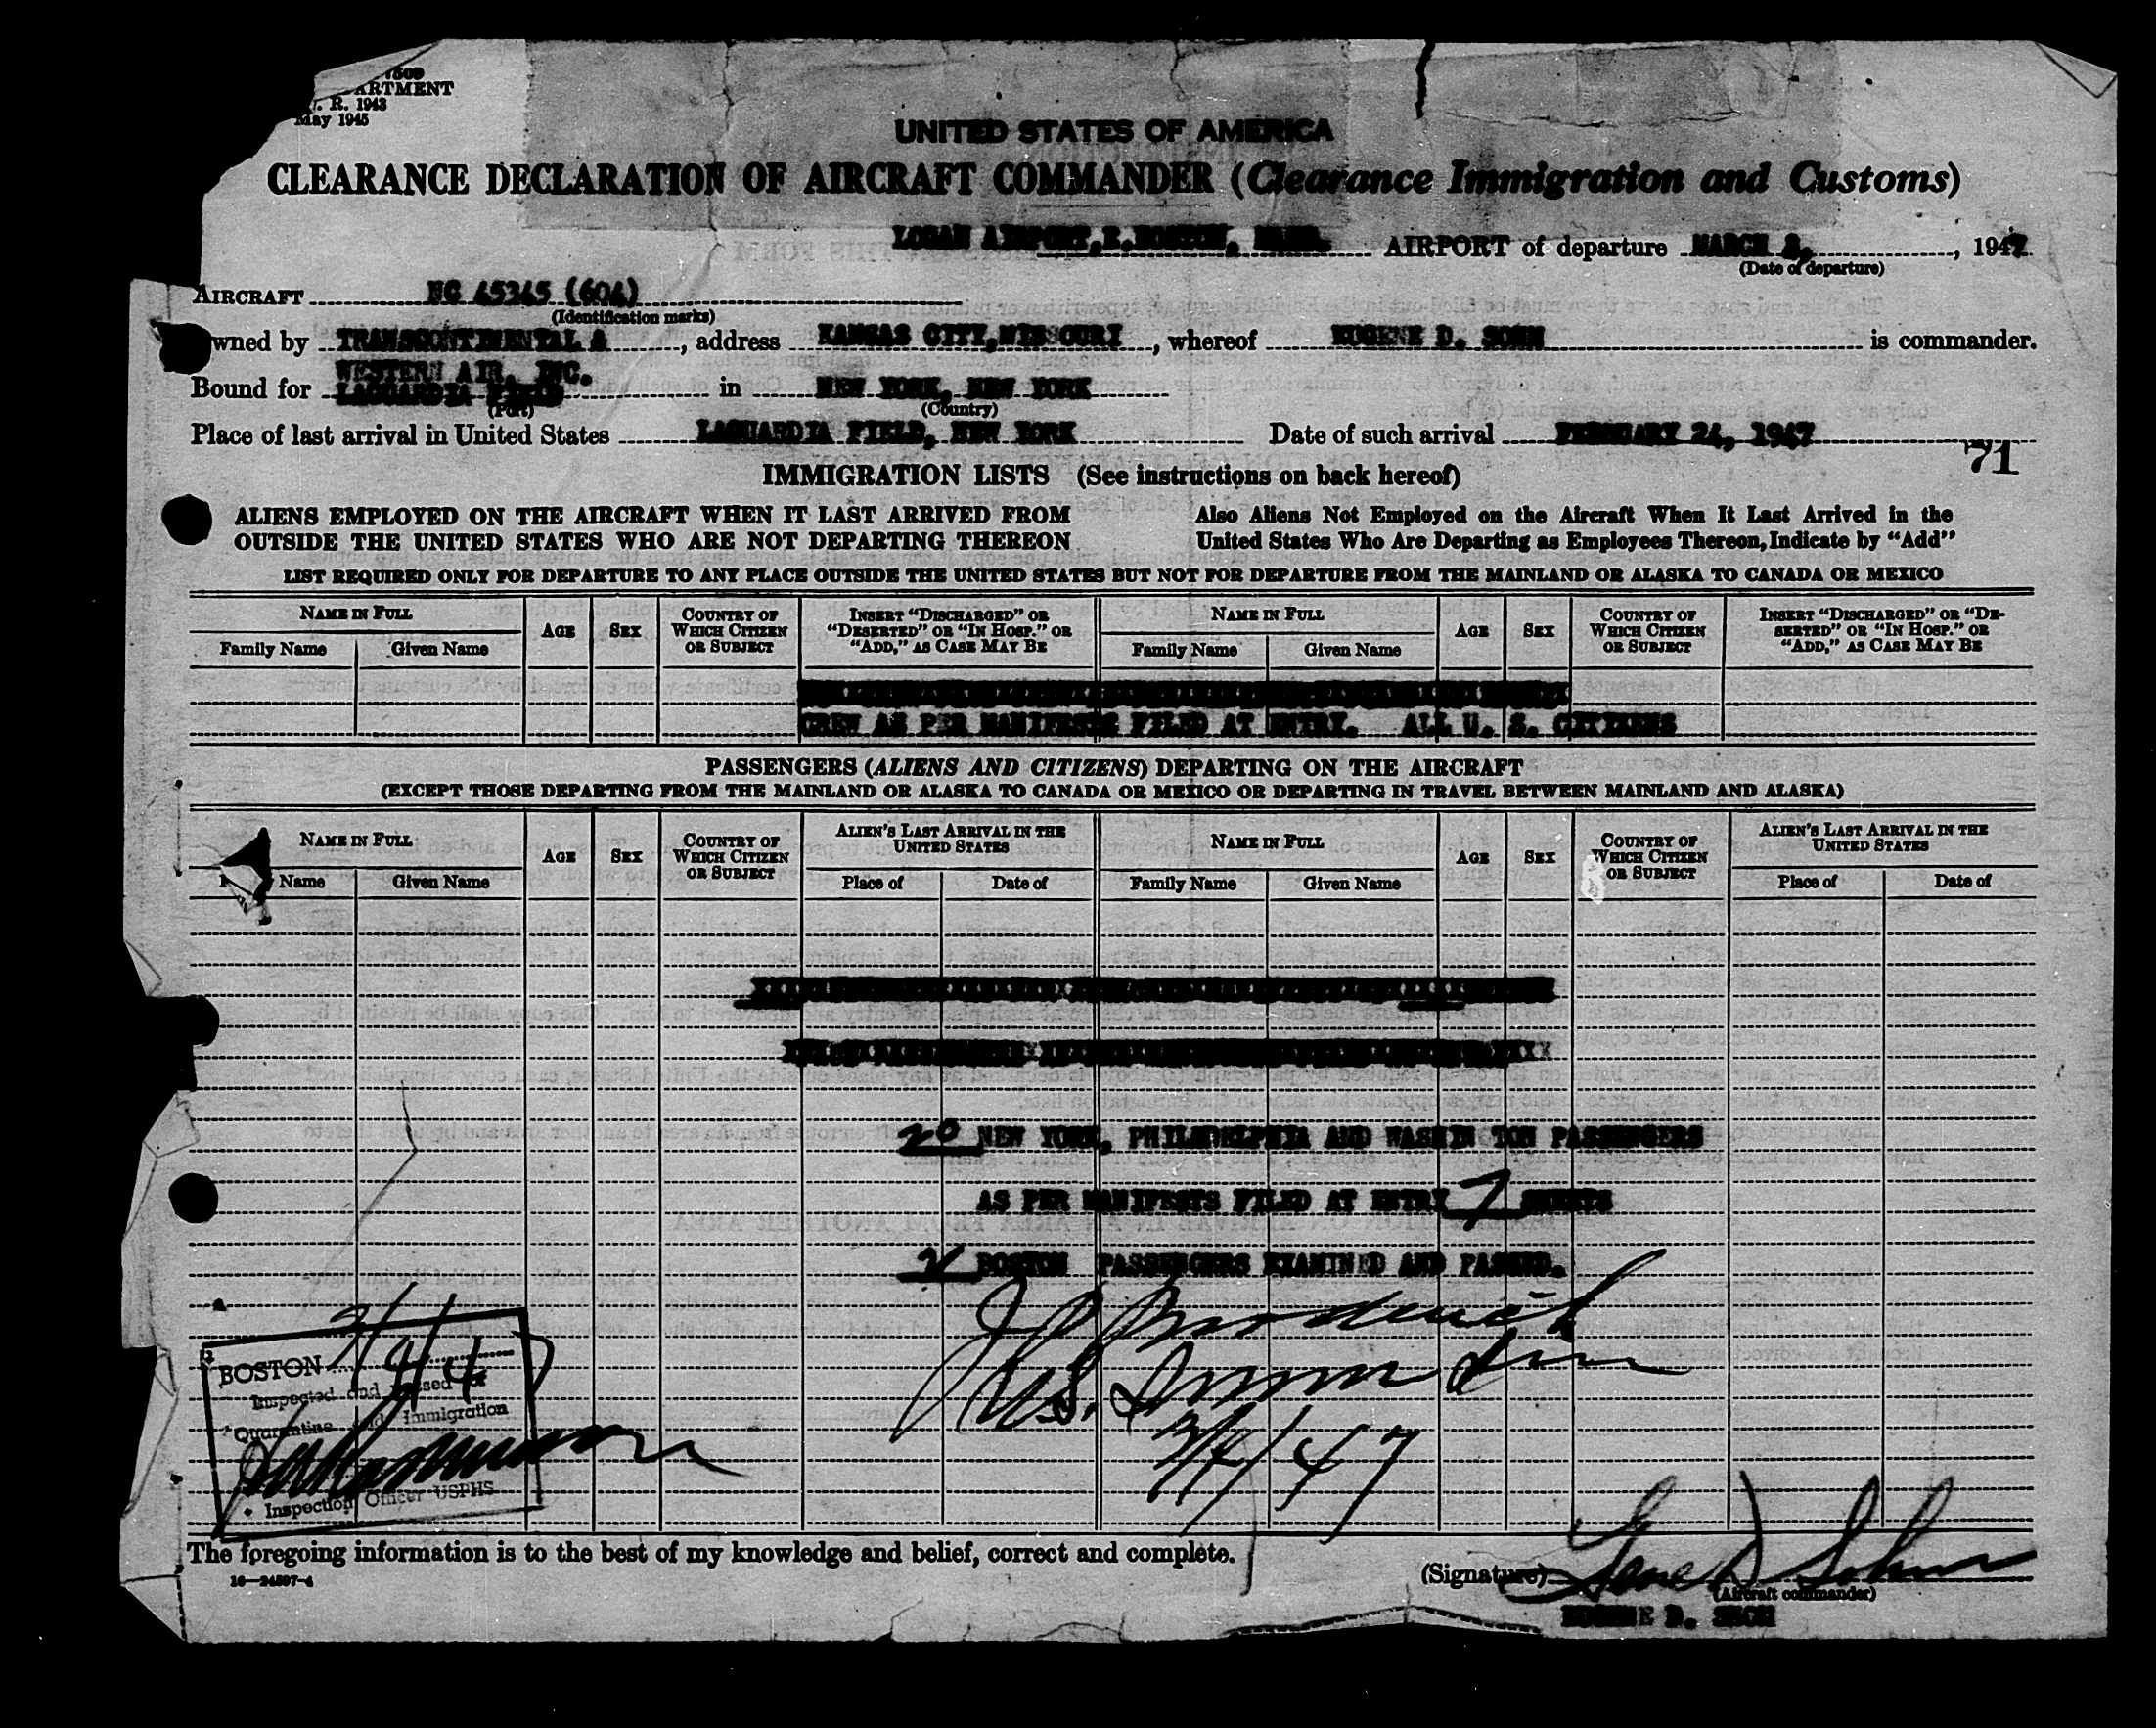 7509
ARTMENT
T. R. 1943
May 1945
UNITED STATES OF AMERICA
CLEARANCE DECLARATION OF AIRCRAFT COMMANDER (Clearance Immigration and Customs)
LOGAN AIRPORT, E. BOSTON, MASS. AIRPORT of departure MARCH , 1947
(Date of departure)
AIRCRAFT NC 45345 (604)
(Identification marks)
wned by TRANSCONTINENTAL & , address KANSAS CITY, MISSOURI , whereof EUGENE D. SOHN is commander.
WESTERN AIR, INC.
Bound for LAGUARDIA FIELD in NEW YORK, NEW YORK
(Port) (Country)
Place of last arrival in United States LAGUARDIA FIELD, NEW YORK Date of such arrival FEBRUARY 24, 1947
71
IMMIGRATION LISTS (See instructions on back hereof)
ALIENS EMPLOYED ON THE AIRCRAFT WHEN IT LAST ARRIVED FROM Also Aliens Not Employed on the Aircraft When It Last Arrived in the
OUTSIDE THE UNITED STATES WHO ARE NOT DEPARTING THEREON United States Who Are Departing as Employees Thereon, Indicate by "Add"
LIST REQUIRED ONLY FOR DEPARTURE TO ANY PLACE OUTSIDE THE UNITED STATES BUT NOT FOR DEPARTURE FROM THE MAINLAND OR ALASKA TO CANADA OR MEXICO
NAME IN FULL AGE SEX COUNTRY OF WHICH CITIZEN OR SUBJECT INSERT "DISCHARGED" OR "DESERTED" OR "IN HOSP." OR "ADD," AS CASE MAY BE NAME IN FULL AGE SEX COUNTRY OF WHICH CITIZEN OR SUBJECT INSERT "DISCHARGED" OR "DE-SERTED" OR "IN HOSP." OR "ADD," AS CASE MAY BE
Family Name Given Name Family Name Given Name
CREW AS PER MANIFESTS FILED AT ENTRY. ALL U. S. CITIZENS
PASSENGERS (ALIENS AND CITIZENS) DEPARTING ON THE AIRCRAFT
(EXCEPT THOSE DEPARTING FROM THE MAINLAND OR ALASKA TO CANADA OR MEXICO OR DEPARTING IN TRAVEL BETWEEN MAINLAND AND ALASKA)
NAME IN FULL AGE SEX COUNTRY OF WHICH CITIZEN OR SUBJECT ALIEN'S LAST ARRIVAL IN THE UNITED STATES NAME IN FULL AGE SEX COUNTRY OF WHICH CITIZEN OR SUBJECT ALIEN'S LAST ARRIVAL IN THE UNITED STATES
Name Given Name Place of Date of Family Name Given Name Place of Date of
20 NEW YORK, PHILADELPHIA AND WASHIN TON PASSENGERS
AS PER MANIFESTS FILED AT ENTRY 7 SHEETS
BOSTON PASSENGERS EXAMINED AND PASSED.
J P Broderick
U.S. Immn
3/4/47
3/4/47
BOSTON
Inspected and Passed for
Quarantine and Immigration
Inspection Officer USPHS
The foregoing information is to the best of my knowledge and belief, correct and complete.
16—24597-4
(Signature) Gene D Sohn
(Aircraft commander)
EUGENE D. SOHN